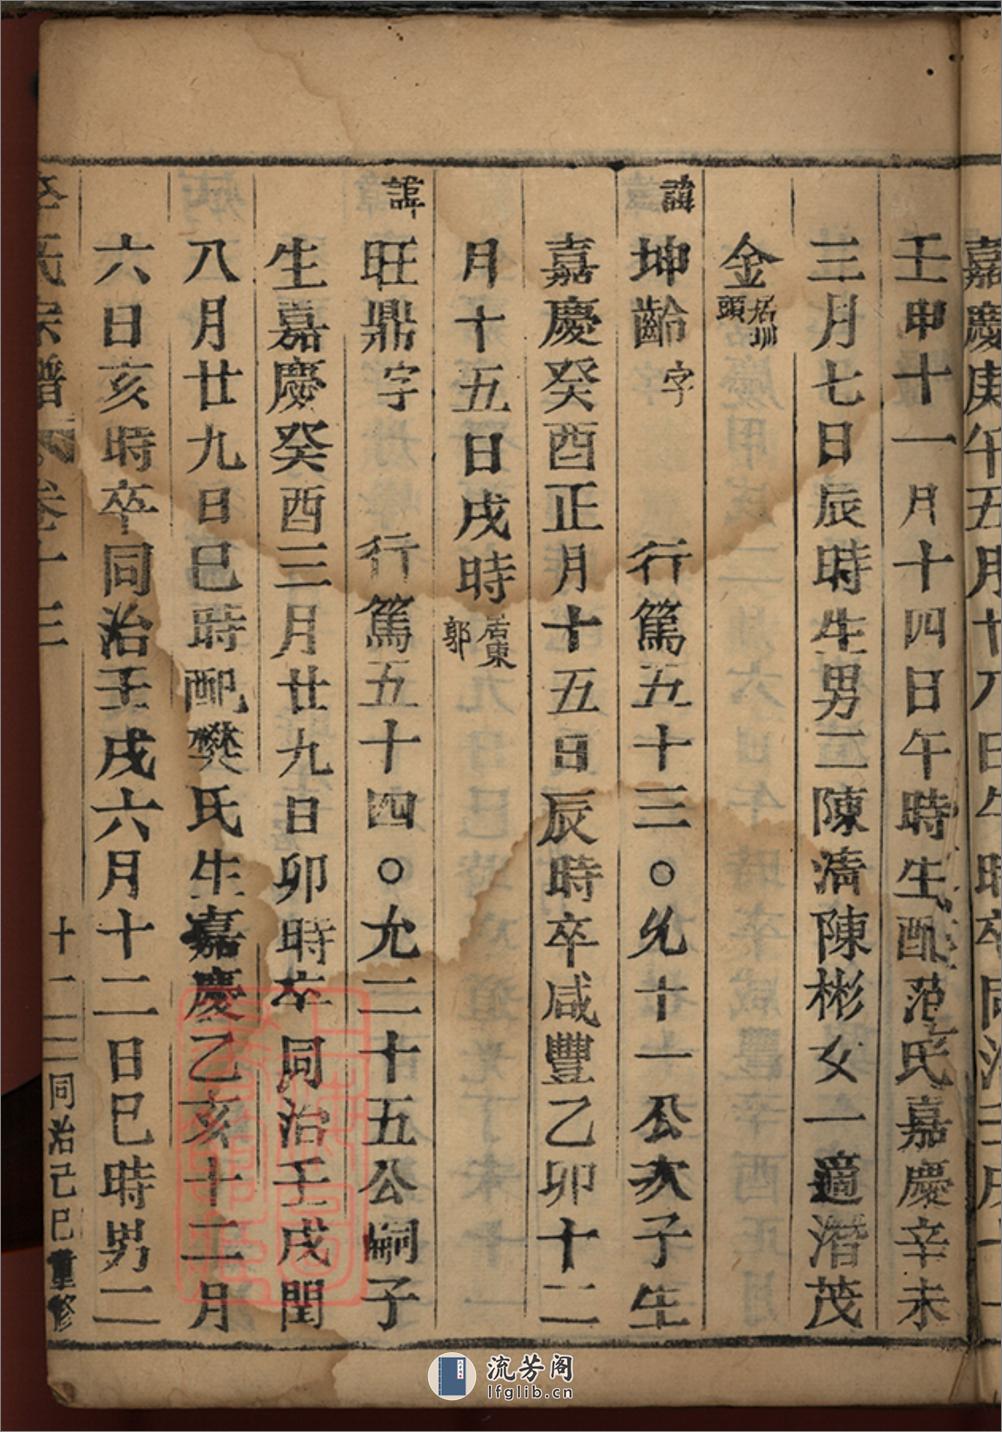 嘉慶庚午五月十八日午時卒同治
壬申十一月十四日午時生配范氏嘉慶辛未
三月七日辰時生男二陳清陳彬女一適潛茂
金居圳頭
諱坤齡字 行篤五十三○允十一公次子生
嘉慶癸酉正月十五日辰時卒咸豐乙卯十二
月十五日戌時居東郭
諱旺鼎字 行篤五十四○允二十五公嗣子
生嘉慶癸酉三月廿九日卯時卒同治壬戌閏
八月廿九日巳時配樊氏生嘉慶乙亥十二月
六日亥時卒同治壬戌六月十二日巳時男二
氏宗譜 卷十三 十一 同治己巳重修
流芳阁
lfglib.cn